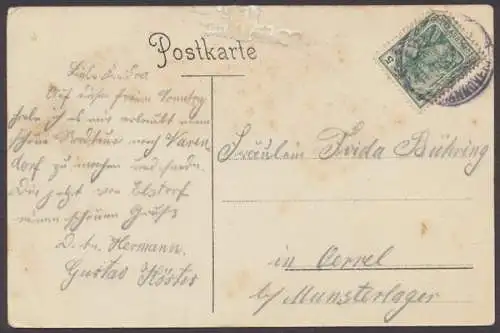 Postkarte
Liebe Frida
Auf ihrer freien Sonntag
habe ich es mir erlaubt eine
schöne Radtour nach Waren
dorf zu machen und sende
Dir jetzt von Ebstorf
einen schönen Gruß
D. tr. Hermann.
Gustav Köster
Fräulein Frida Bühring
in Oerrel
b/ Munsterlager
5